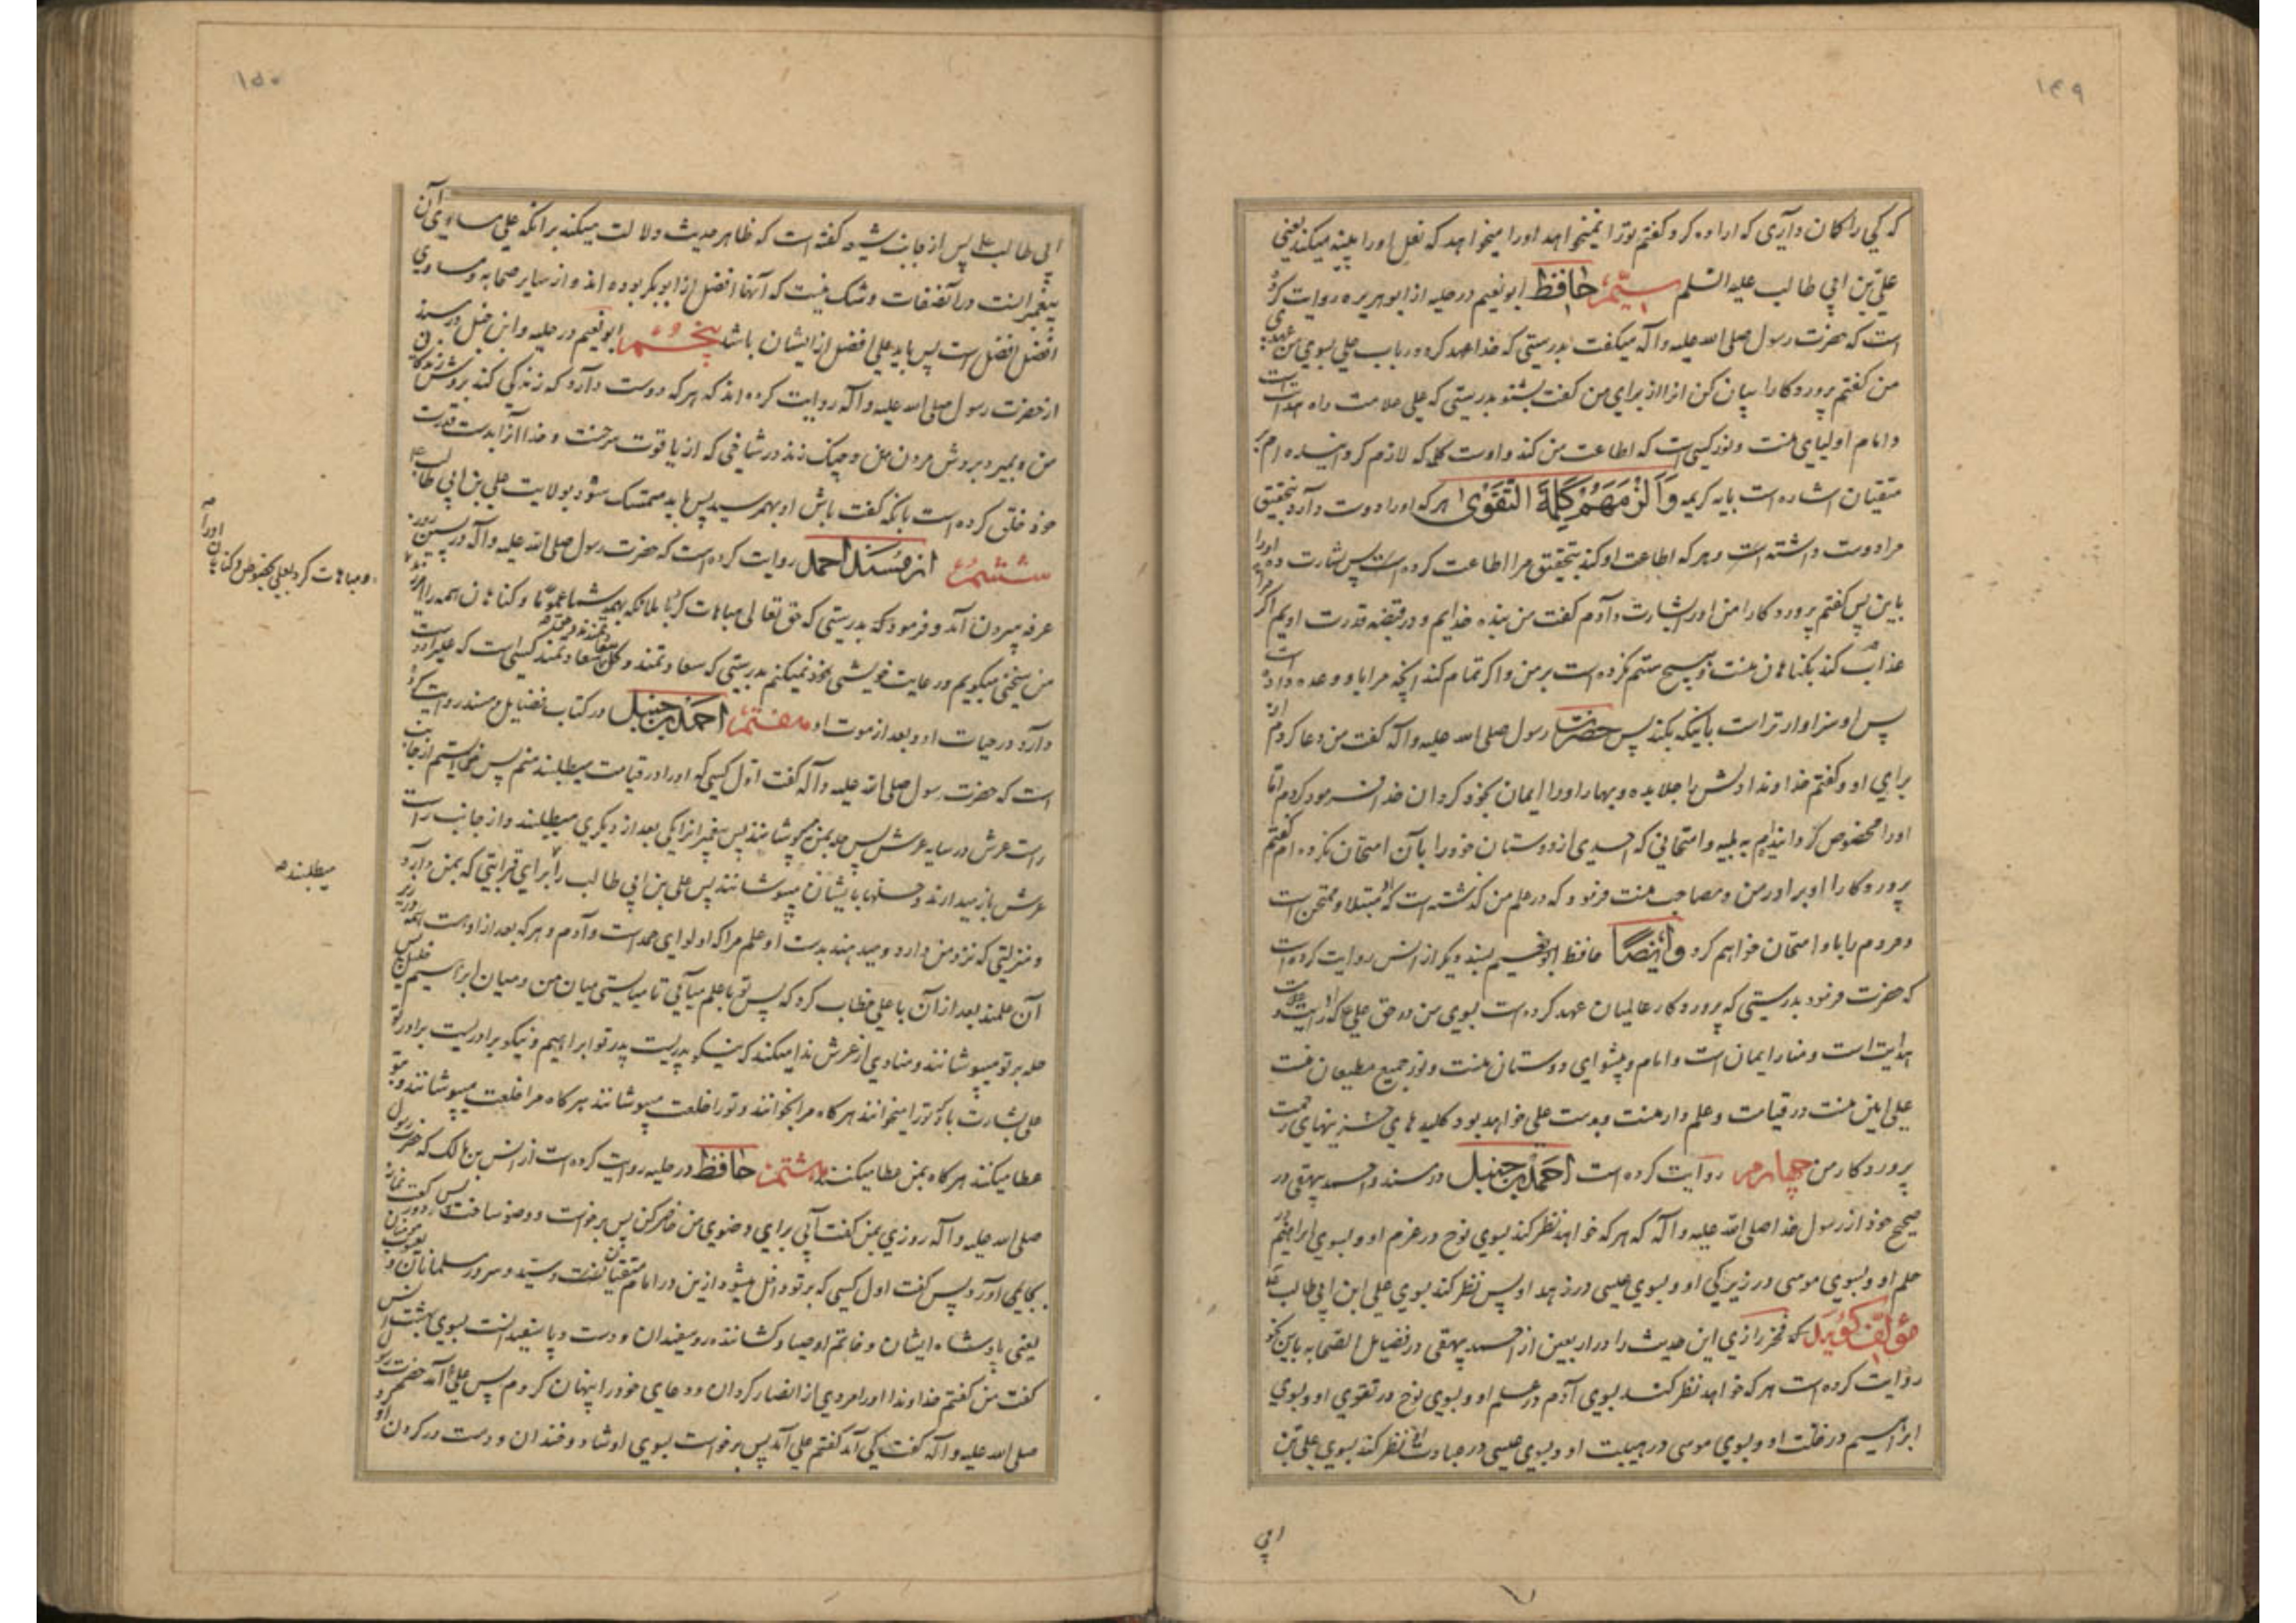 ۱۴۹
که کی را کان داری که اراده کرد گفتم تو را نمیخواهد او را میخواهد که نعل او را پینه میکند یعنی
علی بن ابی طالب علیه السلم سیّم حافظ ابو نعیم در حلیه از ابو هریره روایت کرده
است که حضرت رسول صلی الله علیه و آله میگفت بدرستی که خدا عهد کرد در باب علی بسوی من عهدی
من گفتم پروردکارا بیان کن انرا از برای من گفت بشنو بدرستی که علی علامت راه هدایت است
و امام اولیای منست و نور کسی است که اطاعت من کند و اوست کلمه که لازم کردانیده ام بر
متقیان اشاره است بایه کریمه وَاَلْزَمَهُمْ كَلِمَةَ التَّقْوٰى هر که او را دوست دارد بتحقیق
مرا دوست داشته است و هر که اطاعت او کند بتحقیق مرا اطاعت کرده است پس بشارت ده او را
باین پس گفتم پروردکارا من او را بشارت دادم گفت من بنده خدایم و در قبضه قدرت اویم اگر مرا
عذاب کند بکناهان منست و هیچ ستم نکرده است بر من و اگر تمام کند آنچه مرا باو وعده داده است
پس او سزاوارتر است باینکه بکند پس حضرت رسول صلی الله علیه و آله گفت من دعا کردم از
برای او و گفتم خداوندا دلش را جلا بده و بهار او را ایمان بخود کردان خدا فرمود کردم اما
او را مخصوص کردانیدم به بلیه و امتحانی که احدی از دوستان خود را بآن امتحان نکرده ام گفتم
پروردکارا او برادر من و مصاحب منست فرمود که در علم من گذشته است که او مبتلا و ممتحن است
و مردم را باو امتحان خواهم کرد و ایضًا حافظ ابو نعیم بسند دیگر از انس روایت کرده است
که حضرت فرمود بدرستی که پروردکار عالمیان عهد کرده است بسوی من در حق علی ع که او رایت
هدایت است و منار ایمان است و امام و پیشوای دوستان منست و نور جمیع مطیعان منست
علی امین منست در قیامت و علم دار منست و بدست علی خواهد بود کلیدهای خزینهای رحمت
پروردکار من چهارم روایت کرده است احمد بن حنبل در مسند و احمد بیهقی در
صحیح خود از رسول خدا صلی الله علیه و آله که هر که خواهد نظر کند بسوی نوح در عزم او و بسوی ابراهیم در
حلم او و بسوی موسی در زیرکی او و بسوی عیسی در زهد او پس نظر کند بسوی علی ابن ابی طالب ع
مؤلف کوید که فخر رازی این حدیث را در اربعین از احمد بیهقی در فضایل الصحابه باین نحو
روایت کرده است هر که خواهد نظر کند بسوی آدم در علم او و بسوی نوح در تقوی او و بسوی
ابراهیم در خلت او و بسوی موسی در هیبت او و بسوی عیسی در عبادت او نظر کند بسوی علی بن
ابی
۱۵۰
ابی طالب ع پس از جانب شیعه گفته است که ظاهر حدیث دلالت میکند بر آنکه علی مساوی آن
پیغمبرانست در آن صفات و شک نیست که آنها افضل از ابو بکر بوده اند و از سایر صحابه و مساوی
افضل افضل است پس باید علی افضل از ایشان باشد پنجم ابو نعیم در حلیه و ابن حنبل در مسند
از حضرت رسول صلی الله علیه و آله روایت کرده اند که هر که دوست دارد که زندگی کند بروش زندکانی
من و بمیرد بروش مردن من و چنک زند در شاخی که از یاقوت سرخست و خدا انرا بدست قدرت
خود خلق کرده است بانکه گفت باش او بهم رسید پس باید متمسک شود بولایت علی بن ابی طالب ع
ششم از مُسنَد احمد روایت کرده است که حضرت رسول صلی الله علیه و آله در پسین روز
عرفه بیرون آمد و فرمود که بدرستی که حق تعالی مباهات کرد با ملائکه بهمه شما عمومًا و کناهان همه را
و مباهات کرد بعلی بخصوص و کناهان او را
من سخنی میگویم و رعایت خویشی خود نمیکنم بدرستی که سعادتمند و کل سعادتمند کسی است که علی را دوست
دارد در حیات او و بعد از موت او هفتم احمد بن حنبل در کتاب فضایل و مسند روایت کرده
است که حضرت رسول صلی الله علیه و آله گفت اول کسی که او را در قیامت میطلبند منم پس می ایستم از جانب
راست عرش در سایه عرش پس حله بمن میپوشانند پس پیغمبرانرا یکی بعد از دیگری میطلبند و از جانب راست
عرش باز میدارند و حلتها بایشان میپوشانند پس علی بن ابی طالب را برای قرابتی که بمن دارد
میطلبند
و منزلتی که نزد من دارد و میدهند بدست او علم مرا که او لوای حمد است و آدم و هر که بعد از اوست همه در زیر
آن علمند بعد از آن با علی خطاب کرد که پس تو با علم میآئی تا میایستی میان من و میان ابراهیم خلیل پس
حله بر تو میپوشانند و منادی از عرش ندا میکند که نیکو پدریست پدر تو ابراهیم و نیکو برادریست برادر تو
علی بشارت باد تو را میخوانند هر کاه مرا بخوانند و تو را خلعت میپوشانند هر کاه مرا خلعت میپوشانند و بتو
عطا میکنند هر کاه بمن عطا میکنند هشتم حافظ در حلیه روایت کرده است از انس بن مالک که حضرت رسول
صلی الله علیه و آله روزی بمن گفت آبی برای وضوی من حاضر کن پس برخواست و وضو ساخت و دو رکعت نماز
بجای آورد پس گفت اول کسی که بر تو داخل میشود ازین در امام متقیانست و سید و سرور مسلمانان و یعسوب مؤمنان
یعنی پادشاه ایشان و خاتم اوصیا و کشاننده روسفیدان و دست و پا سفیدانست بسوی بهشت انس
گفت من گفتم خداوندا او را مردی از انصار کردان و دعای خود را پنهان کردم پس علی ع آمد حضرت رسول
صلی الله علیه و آله گفت کی آمد گفتم علی آمد پس برخواست بسوی او شاد و خندان و دست در کردن او